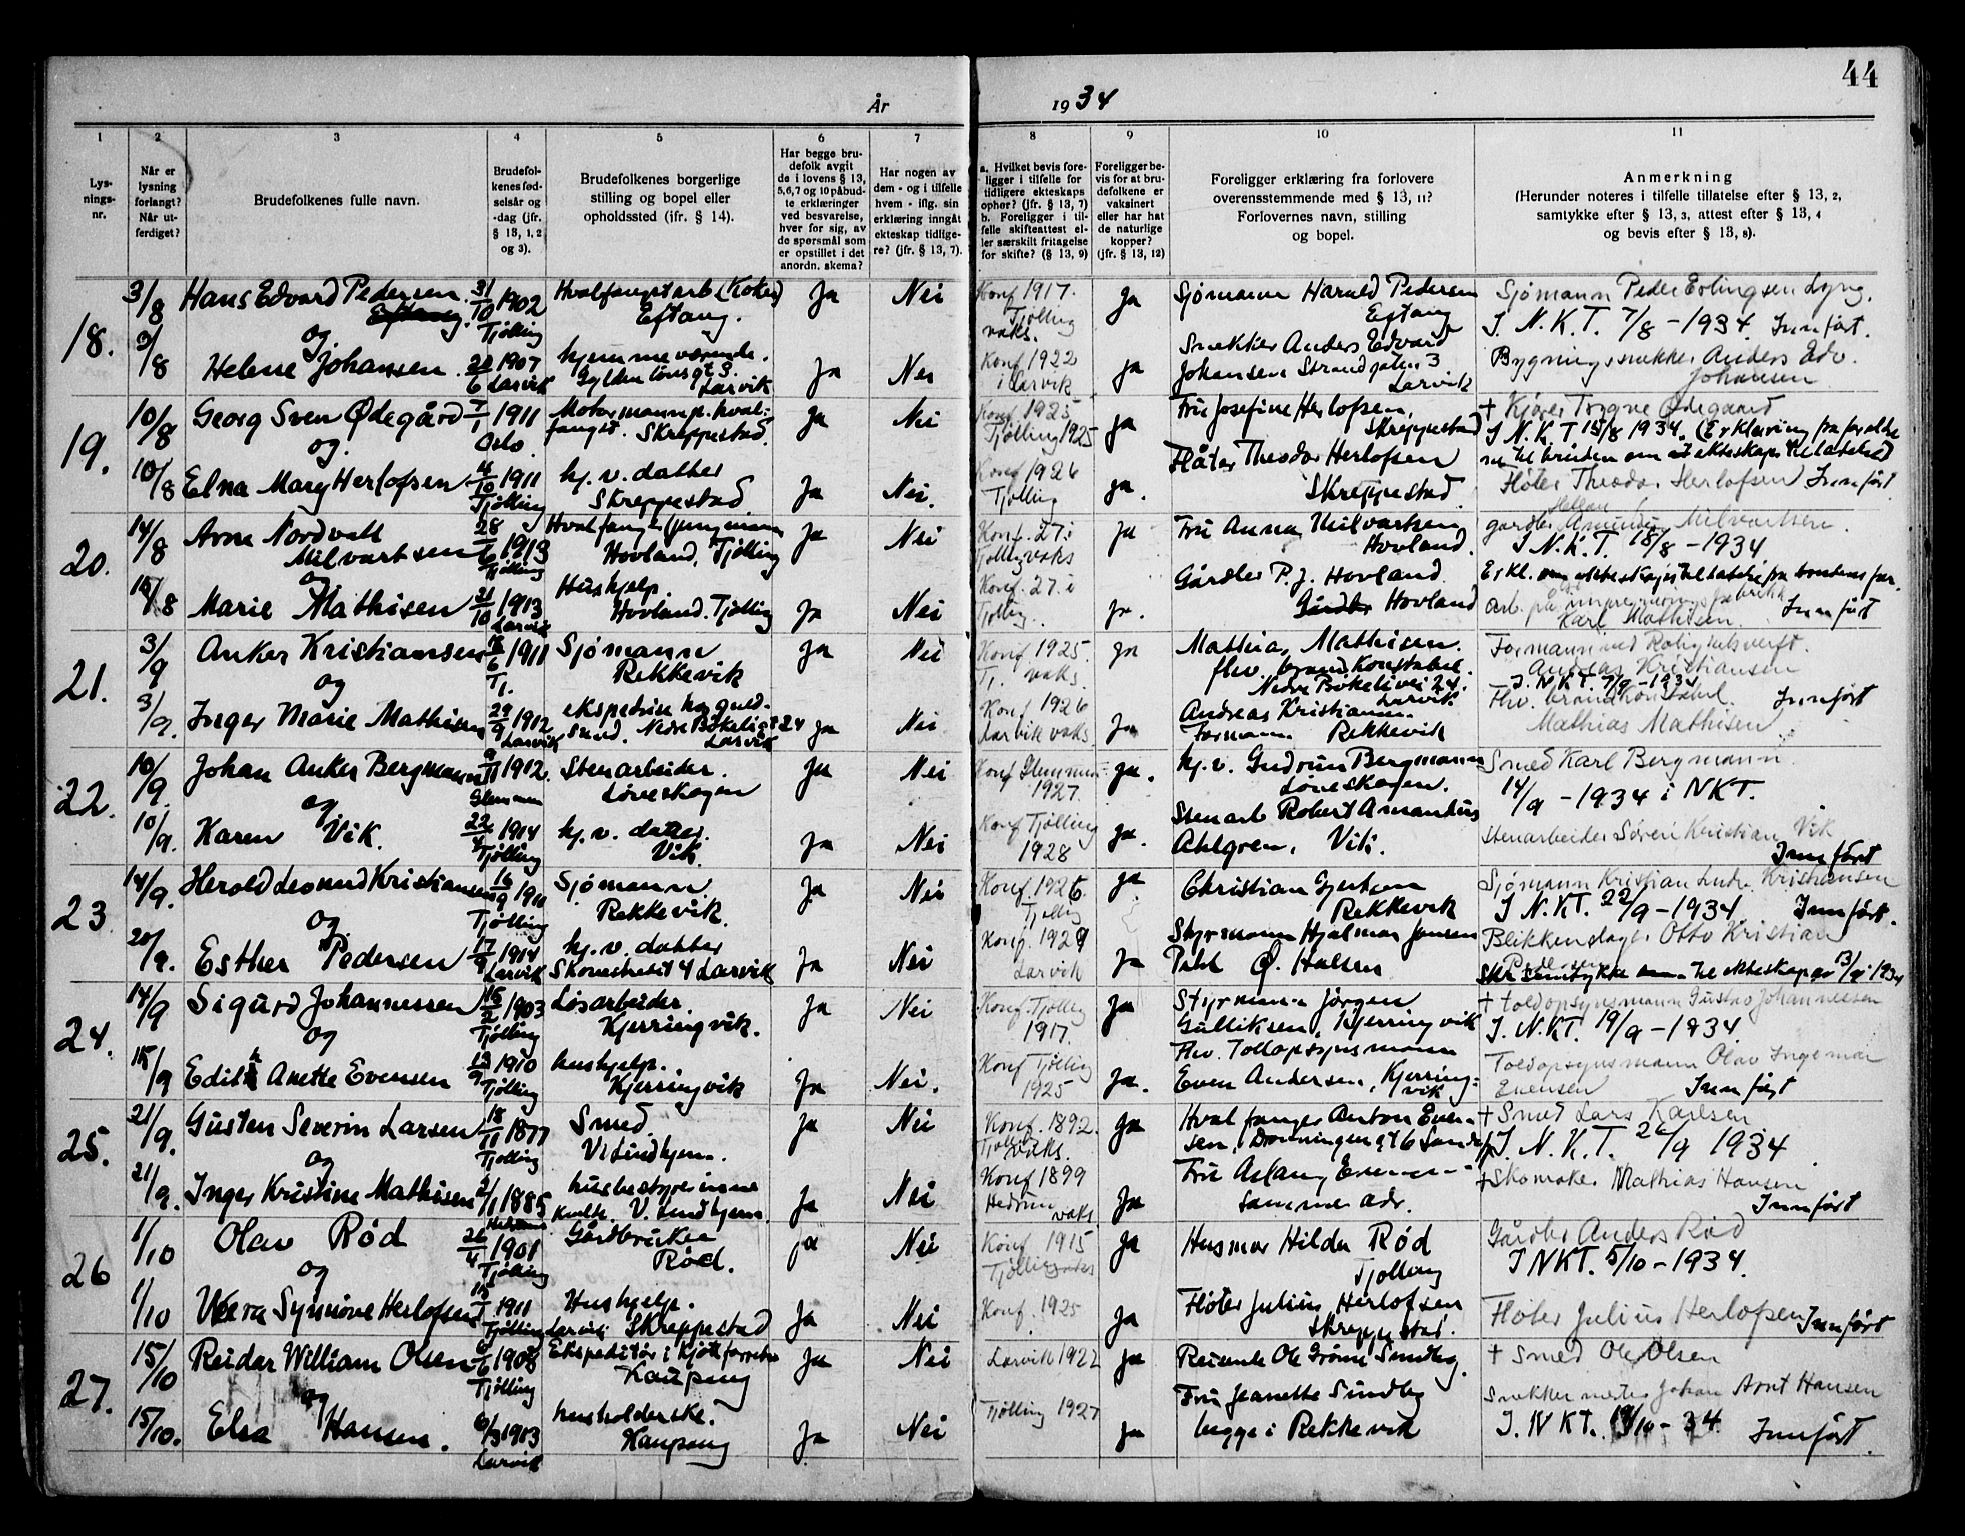 44
År 1934
1 2 3 4 5 6 7 8 9 10 11
Lys-
nings-
nr.
Når er
lysning
forlangt?
Når ut-
ferdiget?
Brudefolkenes fulle navn.
Brudefol-
kenes fød-
selsår og
-dag (jfr.
§ 13, 1, 2
og 3).
Brudefolkenes borgerlige
stilling og bopel eller
opholdssted (jfr. § 14).
Har begge bru-
defolk avgit
de i lovens § 13,
5,6,7 og 10 påbud-
te erklæringer
ved besvarelse,
hver for sig, av
de spørsmål som
er opstillet i det
anordn. skema?
Har nogen av
dem - og i tilfelle
hvem - iflg. sin
erklæring inngåt
ekteskap tidlige-
re? (jfr. § 13, 7).
a. Hvilket bevis fore-
ligger i tilfelle for
tidligere ekteskaps
ophør? (jfr. § 13, 7)
b. Foreligger i til-
felle skifteattest el-
ler særskilt fritagelse
for skifte? (§ 13, 9)
Foreligger be-
vis for at bru-
defolkene er
vaksinert
eller har hat
de naturlige
kopper?
(jfr. § 13, 12)
Foreligger erklæring fra forlovere
overensstemmende med § 13, 11?
Forlovernes navn, stilling
og bopel.
Anmerkning
(Herunder noteres i tilfelle tillatelse efter § 13, 2,
samtykke efter § 13, 3, attest efter § 13, 4
og bevis efter § 13, 8).
18.
3/8 Hans Edvard Pedersen 31/10 1902 Hvalfangstarb (Koker) Ja Nei Konf 1917. Ja Sjømann Harald Pedersen Sjømann Peder Erlingsen Lyng.
Tjølling Eftang. Tjølling vaks. Eftang I N.K.T. 7/8 - 1934. Innført.
og
3/8 Helene Johansen 1907 Larvik hjemmeværende. Gyldenløvesgt 3. Larvik Ja Nei Konf 1922 i Larvik Ja Snekker Anders Edvard Bygningssnekker Anders Edv.
Johansen Strandgaten 3 Larvik Johansen
19.
10/8 Georg Sven Ødegård 7/1 1911 Motormann p. hval- Ja Nei Konf 1925 Ja Fru Josefine Herlofsen, † Kjører Trygve Ødegaard
og Oslo fangst. Skreppestad. Tjølling 1925 Skreppestad I N.K.T 15/8 1934. (Erklæring fra foreldre
ne til bruden om ekteskaps tillatelse)
10/8 Elna Mary Herlofsen 4/10 1911 hj. v. datter Ja Nei. Konf 1926 Ja. Fløter Theodor Herlofsen Fløter Theodor Herlofsen Innført
Tjølling Skreppestad Tjølling Skreppestad.
20.
14/8 Arne Nordvall 28/6 1913 Hvalfanger (jungmann Ja Nei Konf. 27 i Ja Fru Anna Milvartsen gårdbr Amundin Milvartsen.
Milvartsen Tjølling Hovland, Tjølling Tjølling vaks Hovland. I N.K.T. 18/8 - 1934
og Hushjelp Gårdbr P. J. Hovland
Marie Mathisen 1913 Hovland. Tjølling Ja Nei Konf. 27 i Ja. Hovland Karl Mathisen. Innført
Larvik Tjølling.
21.
3/9 Anker Kristiansen 1911 Sjømann Ja Nei Konf 1925. Ja Mathias Mathisen. Formann ved Rolighetsverft.
og Tj. Rekkevik Tj. vaks. fhv. brannkonstabel. Andreas Kristiansen
Nedre Bøkelivei 24. Larvik. I. N.K.T. 7/9 - 1934
3/9. Inger Marie Mathisen 29/9 1912 ekspedtrise hos guld- Ja Nei Konf 1926 Ja Andreas Kristiansen. Fhv. brannkonstabel Innført
Larvik smed. Nedre Bøkeligt 24 Larvik Larvik vaks. Formann. Rekkevik Mathias Mathisen
22.
10/9. Johan Anker Bergmann 9/11 1912. Stenarbeider. Ja Nei Konf Glemmen Ja. hj. v. Gudrun Bergmann Smed Karl Bergmann
og Glemmen Løveskogen 1927. Løveskogen. 14/9 - 1934 i NKT.
10/9. Karen Vik. 1914 hj. v. datter. Ja Nei Konf Tjølling Ja. Stenarb Robert Amandus Stenarbeider Søren Kristian Vik
Tjølling Vik. 1928 Ahlgren, Vik. Innført
23
14/9. Herold Leonard Kristiansen 16/9 Sjømann Ja Nei Konf 1926 Ja Christian Gjertsen Sjømann Kristian Ludv. Kristiansen
og Tjølling Rekkevik. Tjølling Rekkevik I N.K.T. 22/9 - 1934. Innført.
20/9. Esther Pedersen 17/9 1914 hj. v. datter Ja Nei Konf. 1929 Ja Styrmann Hjalmar Jensen Blikkenslager Otto Kristian
Larvik Larvik Ø. Halsen Pedersen
samtykke til ekteskap av 13/9 1934
24.
14/9 Sigurd Johannessen 1903 Løsarbeider. Ja Nei Konf. Tjølling Ja Styrmann Jørgen † toldopsynsmann Gustav Johannessen
og Tjølling Kjerringvik. 1917. Gulliksen, Kjerringvik I. N.K.T. 19/9 - 1934.
15/9 Edith Anette Evensen 13/9 1910 hushjelp. Ja Nei. Konf Tjølling Ja. Fhv. Tollopsynsmann Toldopsynsmann Olav Ingemar
Tjølling Kjerringvik 1925 Even Andersen, Kjerring-
vik Evensen Innført
25.
21/9. Gusten Severin Larsen 18/11 1877 Smed Ja Nei Konf. 1892. Ja Hvalfanger Anton Even- † Smed Lars Karlsen
og Tjølling V. Lindhjem. Tjølling vaks. sen, Dronningensgt 6 Sandefj. I. N.K.T. 26/9 1934
21/9. Inger Kristine Mathisen 2/1 1885 husbestyrerinne Ja Nei Konf 1899 Ja Fru Aslaug Evensen † Skomaker Mathias Hansen
Hedrum V. Lindhjem. Hedrum vaks samme adr. Innført
26
1/10 Olav Rød 26/4 1901 Gårdbruker Ja Nei Konf 1915 Ja Husmor Hilda Rød Gårdbr Anders Rød
og Tjølling Rød. Tjølling vaks Tjølling I NKT. 5/10 - 1934.
1/10 Vera Synnøve Herlofsen 1911 Hushjelp. Ja Nei Konf. 1925 Ja Fløter Julius Herlofsen Fløter Julius Herlofsen Innført
Tjølling Larvik Skreppestad Skreppestad.
27.
15/10 Reidar William Olsen 1908 Ekspeditør i Kjøttforretn Ja Nei Larvik 1922 Ja Reisende Ole Grønn Sundby † Smed Ole Olsen
og Tjølling Kaupang
15/10. Elsa Hansen. 6/3 1913 husholderske. Ja Nei Tjølling 1927 Ja Fru Jeanette Sundby Snekkermester Johan Arnt Hansen
Larvik Kaupang begge i Rekkevik I. N.K.T. 19/10 - 34. Innført.